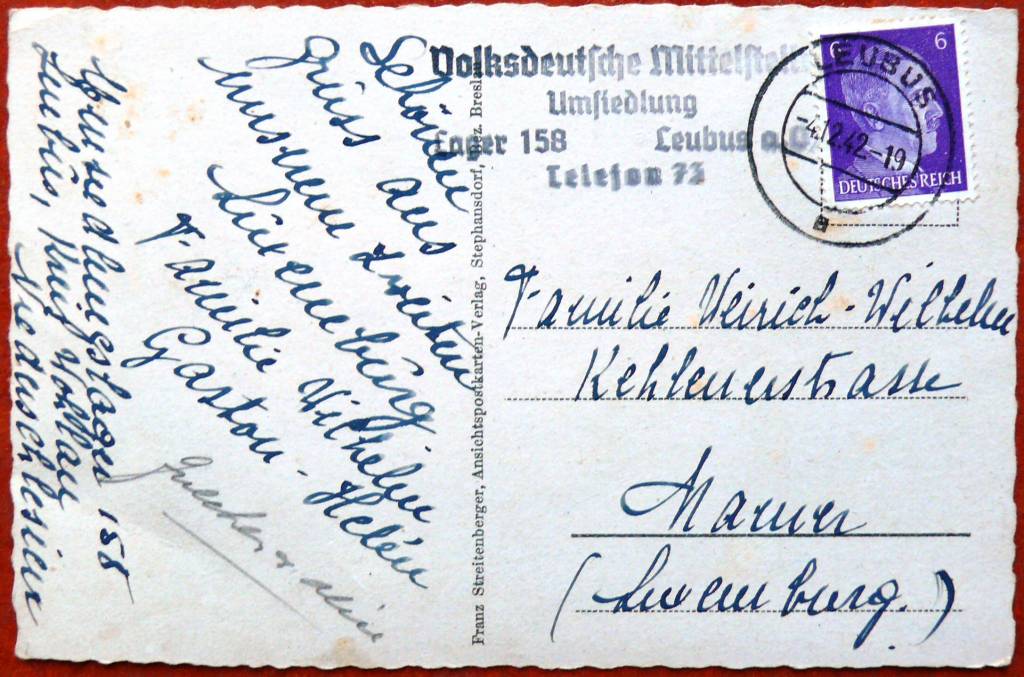 Umsiedlungslager 158
Leubus, Kreis Wohlau
Niederschlesien
Schöne
Grüss aus
unserem zweiten
Luxemburg.
Familie Wilhelm
Gaston - Helén
Franz Streitenberger, Ansichtspostkarten-Verlag, Stephansdorf, Bez. Breslau
Volksdeutsche Mittelstelle
Umsiedlung
Lager 158 Leubus a.O.
Telefon 73
LEUBUS
-4.12.42-19
6 6
DEUTSCHES REICH
Familie Weirich-Wilhelm
Kehlenerstrasse
Mamer
(Luxemburg.)